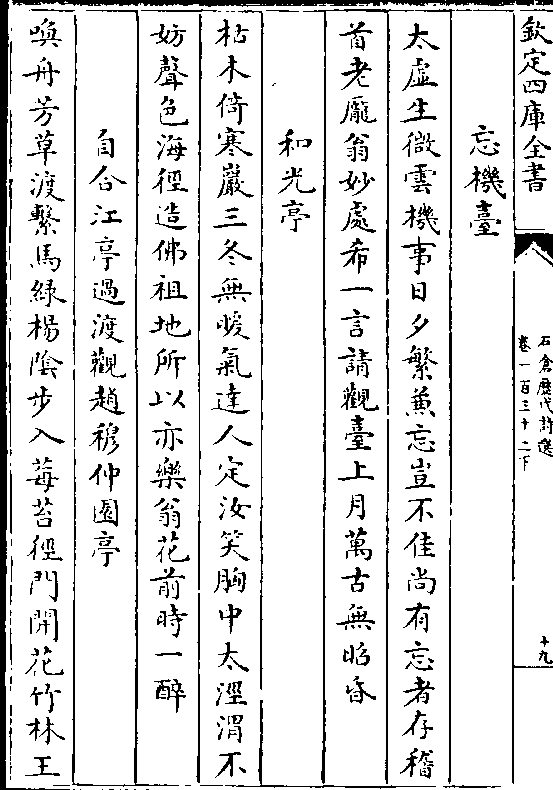 欽定四庫全書
石倉歷代詩選
卷一百三十二下
十九
忘機臺
太虛生微雲機事日夕繁兼忘豈不佳尚有忘者存稽
首老龐翁妙處希一言請觀臺上月萬古無昭昏
和光亭
枯木倚寒巖三冬無暖氣達人定汝笑胸中太涇渭不
妨聲色海徑造佛祖地所以亦樂翁花前時一醉
自合江亭過渡觀趙穆仲園亭
喚舟芳草渡繫馬綠楊陰步入莓苔徑門開花竹林王